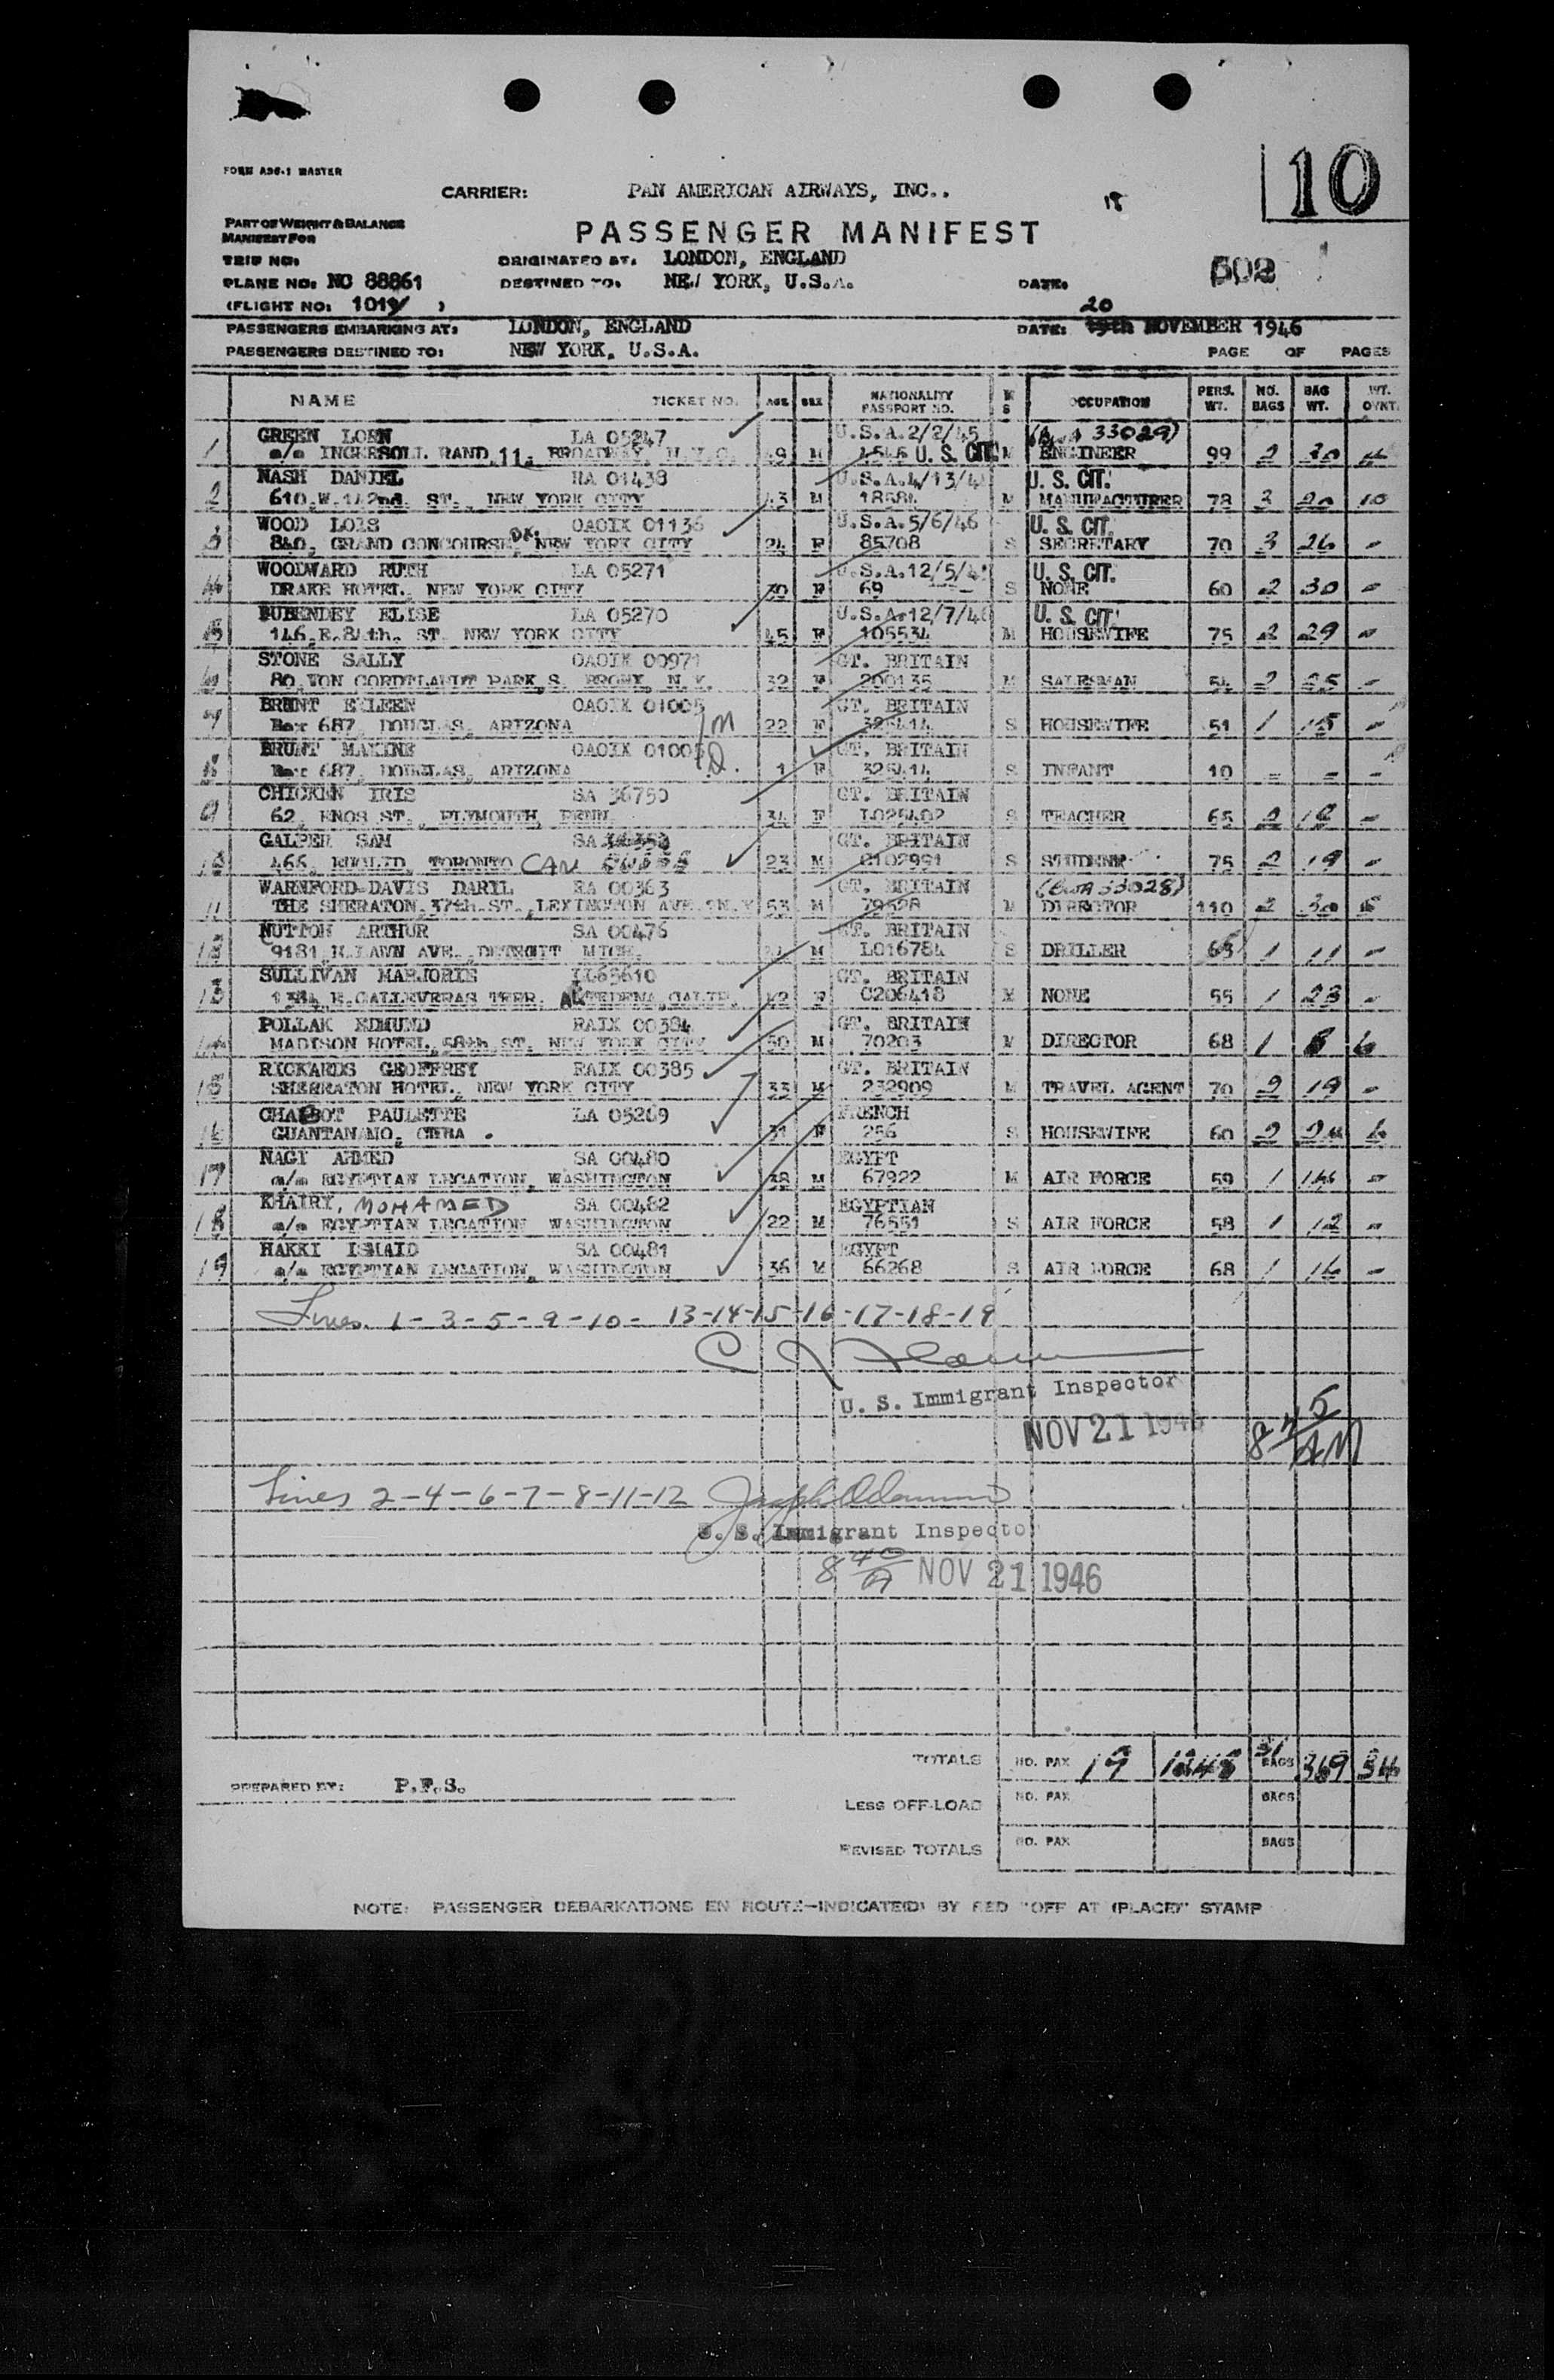 10
FORM ADG-1 MASTER
CARRIER: PAN AMERICAN AIRWAYS, INC..
PART OF WEIGHT & BALANCE
MANIFEST FOR
PASSENGER MANIFEST
TRIP NO:
ORIGINATED AT: LONDON, ENGLAND
PLANE NO: NC 88861
DESTINED TO: NEW YORK, U.S.A.
DATE:
502
(FLIGHT NO: 101 )
20
PASSENGERS EMBARKING AT: LONDON, ENGLAND
DATE: 19th NOVEMBER 1946
PASSENGERS DESTINED TO: NEW YORK, U.S.A.
PAGE OF PAGES
NAME TICKET NO. AGE SEX NATIONALITY PASSPORT NO. M S OCCUPATION PERS. WT. NO. BAGS BAG WT. WT. OVWT.
GREEN LOEN LA 05247 U.S.A. 2/2/45 33029)
1 c/o INGERSOLL RAND, 11, BROADWAY, N.Y.C. 49 M U.S. CIT. M ENGINEER 99 2 30
NASH DANIEL RA 01438 U.S.A. 4/13/4 U.S. CIT.
2 610, W. 142nd. ST., NEW YORK CITY 43 M 18684 M MANUFACTURER 78 3 20 10
WOOD LOIS OAOIX 01136 U.S.A. 5/6/46 U.S. CIT.
3 840, GRAND CONCOURSE, NEW YORK CITY 24 F 85708 S SECRETARY 70 3 26 -
WOODWARD RUTH LA 05271 U.S.A. 12/5/4 U.S. CIT.
4 DRAKE HOTEL, NEW YORK CITY 30 F 69 S NONE 60 2 30 -
BUBENDEY ELISE LA 05270 U.S.A. 12/7/4 U.S. CIT.
5 146, E. 84th. ST. NEW YORK CITY 45 F 105534 M HOUSEWIFE 75 2 29 -
STONE SALLY OAOIX 00971 GT. BRITAIN
6 80, VON CORDTLANDT PARK, S. BRONX, N.Y. 32 F 200135 M SALESMAN 54 2 25 -
BRUNT EILEEN OAOIX 01005 GT. BRITAIN
7 Box 687, DOUGLAS, ARIZONA 22 F 325414 S HOUSEWIFE 51 1 15 -
BRUNT MAXINE OAOIX 01005 GT. BRITAIN
8 Box 687, DOUGLAS, ARIZONA 1 F 325414 S INFANT 10 - - -
CHICKEN IRIS SA 36750 GT. BRITAIN
9 62, ENOS ST., PLYMOUTH, PENN. 34 F L025402 S TEACHER 65 2 18 -
GALPER SAM SA GT. BRITAIN
10 466, EUCLID, TORONTO CAN 23 M C102991 S STUDENT 75 2 19 -
WARNFORD-DAVIS DARYL RA 00363 GT. BRITAIN (BWA 33028)
11 THE SHERATON, 37th. ST., LEXINGTON AVE. 53 M 79528 M DIRECTOR 110 2 30 5
HUTTON ARTHUR SA 00476 GT. BRITAIN
12 9181, N. LAWN AVE., DETROIT MICH. M L016784 S DRILLER 63 1 11 -
SULLIVAN MARJORIE GT. BRITAIN
13 1384, E. CALLEVERAS TERR. ALTEDENA, CALIF. 42 F C206418 M NONE 55 1 23 -
POLLAK EDMUND RAIX 00384 GT. BRITAIN
14 MADISON HOTEL, 58th. ST. NEW YORK CITY 50 M 70203 M DIRECTOR 68 1 8 6
RICKARDS GEOFFREY RAIX 00385 GT. BRITAIN
15 SHERRATON HOTEL, NEW YORK CITY 33 M 232909 M TRAVEL AGENT 70 2 19 -
CHABOT PAULETTE LA 05269 FRENCH
16 GUANTANAMO, CUBA. 31 F 256 S HOUSEWIFE 60 2 24 6
NAGI AHMED SA 00480 EGYPT
17 c/o EGYPTIAN LEGATION, WASHINGTON 38 M 67922 M AIR FORCE 59 1 14 -
KHAIRY, MOHAMED SA 00482 EGYPTIAN
18 c/o EGYPTIAN LEGATION WASHINGTON 22 M 76551 S AIR FORCE 58 1 12 -
HAKKI ISMAID SA 00481 EGYPT
19 c/o EGYPTIAN LEGATION, WASHINGTON 36 M 66268 S AIR FORCE 68 1 16 -
Lines. 1-3-5-9-10- 13-14-15-16-17-18-19
U. S. Immigrant Inspector
NOV 21 1946
8 45 AM
Lines 2-4-6-7-8-11-12
U. S. Immigrant Inspector
8 40 A NOV 21 1946
TOTALS NO. PAX 19 1248 31 BAGS 369 34
PREPARED BY: P.F.S.
LESS OFF-LOAD NO. PAX BAGS
REVISED TOTALS NO. PAX BAGS
NOTE: PASSENGER DEBARKATIONS EN ROUTE-INDICATE(D) BY RED "OFF AT (PLACE)" STAMP